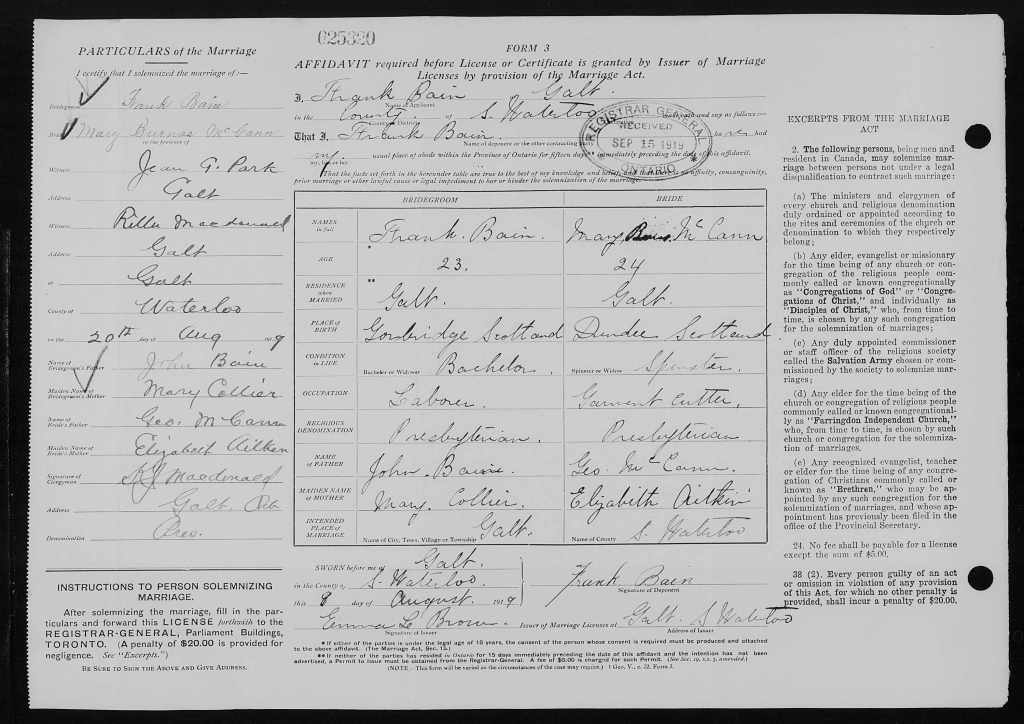 025320
PARTICULARS of the Marriage
I certify that I solemnized the marriage of:—
Bridegroom Frank Bain
Bride Mary Burnas McCann
in the presence of
Witness Jean G. Park
Address Galt
Witness Rilla Macdonald
Address Galt
at Galt
County of Waterloo
on the 20th day of Aug 1919
Name of Bridegroom's Father John Bain
Maiden Name of Bridegroom's Mother Mary Collier
Name of Bride's Father Geo. McCann
Maiden Name of Bride's Mother Elizabeth Aitken
Signature of Clergyman Macdonald
Address Galt, Ont.
Denomination Pres.
INSTRUCTIONS TO PERSON SOLEMNIZING
MARRIAGE.
After solemnizing the marriage, fill in the par-
ticulars and forward this LICENSE forthwith to the
REGISTRAR-GENERAL, Parliament Buildings,
TORONTO. (A penalty of $20.00 is provided for
negligence. See "Excerpts.")
BE SURE TO SIGN THE ABOVE AND GIVE ADDRESS.
FORM 3
AFFIDAVIT required before License or Certificate is granted by Issuer of Marriage
Licenses by provision of the Marriage Act.
I, Frank Bain Galt.
Name of Applicant
in the County of S. Waterloo make oath and say as follows:—
That I, Frank Bain.
Name of deponent or the other contracting party
ha ves had
my usual place of abode within the Province of Ontario for fifteen days immediately preceding the date of this affidavit.
my, his or her
That the facts set forth in the hereunder table are true to the best of my knowledge and belief, and there is no affinity, consanguinity,
prior marriage or other lawful cause or legal impediment to bar or hinder the solemnization of the marriage.
REGISTRAR GENERAL
RECEIVED
SEP 15 1919
ONTARIO
BRIDEGROOM BRIDE
NAMES in full Frank. Bain. Mary McCann
AGE 23. 24
RESIDENCE when MARRIED Galt. Galt.
PLACE OF BIRTH Gorebridge Scotland Dundee Scotland
CONDITION IN LIFE Bachelor or Widower Bachelor. Spinster or Widow Spinster.
OCCUPATION Laborer. Garment Cutter.
RELIGIOUS DENOMINATION Presbyterian. Presbyterian.
NAME OF FATHER John. Bain. Geo. McCann.
MAIDEN NAME OF MOTHER Mary. Collier. Elizabeth Aitkin
INTENDED PLACE OF MARRIAGE Name of City, Town, Village or Township Galt. Name of County S. Waterloo
SWORN before me at Galt.
in the County of S. Waterloo. Frank Bain
Signature of Deponent
this 8 day of August. 1919
Emma L Brown. Issuer of Marriage Licenses at Galt. S Waterloo
Signature of Issuer Address of Issuer
* If either of the parties is under the legal age of 18 years, the consent of the person whose consent is required must be produced and attached
to the above affidavit. (The Marriage Act, Sec. 15.)
** If neither of the parties has resided in Ontario for 15 days immediately preceding the date of this affidavit and the intention has not been
advertised, a Permit to Issue must be obtained from the Registrar-General. A fee of $5.00 is charged for such Permit. (See Sec. 19, s.s. 3, amended.)
(NOTE - This form will be varied as the circumstances of the case may require.) 1 Geo. V., c. 32. Form 3.
EXCERPTS FROM THE MARRIAGE
ACT
2. The following persons, being men and
resident in Canada, may solemnize mar-
riage between persons not under a legal
disqualification to contract such marriage:
(a) The ministers and clergymen of
every church and religious denomination
duly ordained or appointed according to
the rites and ceremonies of the church or
denomination to which they respectively
belong;
(b) Any elder, evangelist or missionary
for the time being of any church or con-
gregation of the religious people com-
monly called or known congregationally
as "Congregations of God" or "Congre-
gations of Christ," and individually as
"Disciples of Christ," who, from time to
time, is chosen by any such congregation
for the solemnization of marriages;
(c) Any duly appointed commissioner
or staff officer of the religious society
called the Salvation Army chosen or com-
missioned by the society to solemnize mar-
riages;
(d) Any elder for the time being of the
church or congregation of religious people
commonly called or known congregational-
ly as "Farringdon Independent Church,"
who, from time to time, is chosen by such
church or congregation for the solemniza-
tion of marriages.
(e) Any recognized evangelist, teacher
or elder for the time being of any congre-
gation of Christians commonly called or
known as "Brethren," who may be ap-
pointed by any such congregation for the
solemnization of marriages, and whose ap-
pointment has previously been filed in the
office of the Provincial Secretary.
24. No fee shall be payable for a license
except the sum of $5.00.
38 (2). Every person guilty of an act
or omission in violation of any provision
of this Act, for which no other penalty is
provided, shall incur a penalty of $20.00.